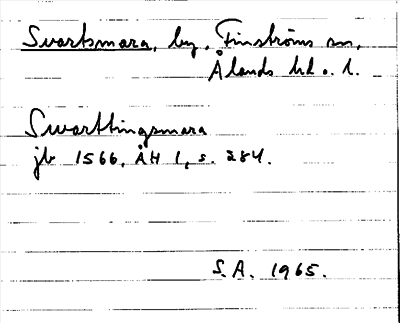 Svartsmara, by, Finströms sn,
Ålands hd o. l.
Svarttingsmara
jb 1566, ÅH 1, s. 284.
S.A. 1965.